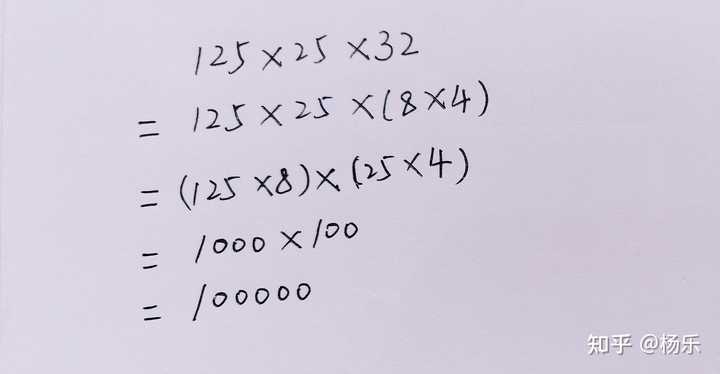 125×25×32
= 125×25×(8×4)
=(125×8)×(25×4)
= 1000×100
= 100000
知乎 @杨乐